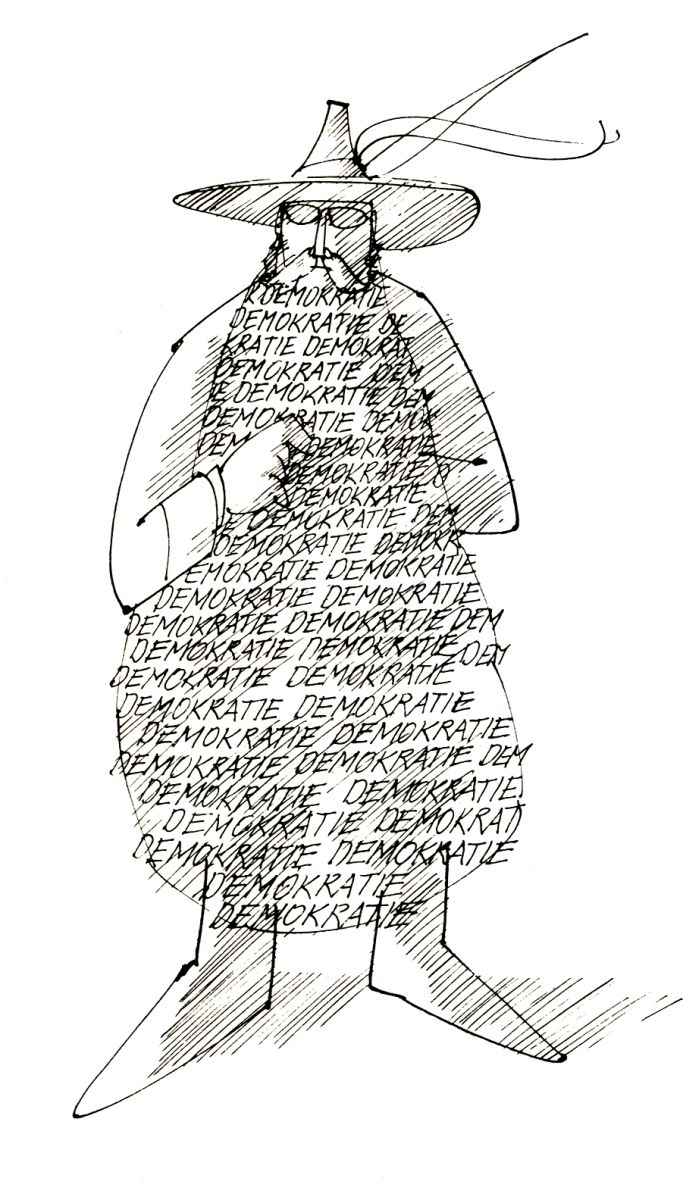 DEMOKRATIE
DEMOKRATIE DE
KRATIE DEMOKRAT
DEMOKRATIE DEM
E DEMOKRATIE DEM
DEMOKRATIE DEMOK
DEM DEMOKRATIE
DEMOKRATIE D
DEMOKRATIE
E DEMOKRATIE DEM
DEMOKRATIE DEMOKR
EMOKRATIE DEMOKRATIE
DEMOKRATIE DEMOKRATIE
DEMOKRATIE DEMOKRATIE DEM
DEMOKRATIE DEMOKRATIE DEM
DEMOKRATIE DEMOKRATIE
DEMOKRATIE DEMOKRATIE
DEMOKRATIE DEMOKRATIE
DEMOKRATIE DEMOKRATIE DEM
DEMOKRATIE DEMOKRATIE
DEMOKRATIE DEMOKRATI
DEMOKRATIE DEMOKRATIE
DEMOKRATIE
DEMOKRATIE